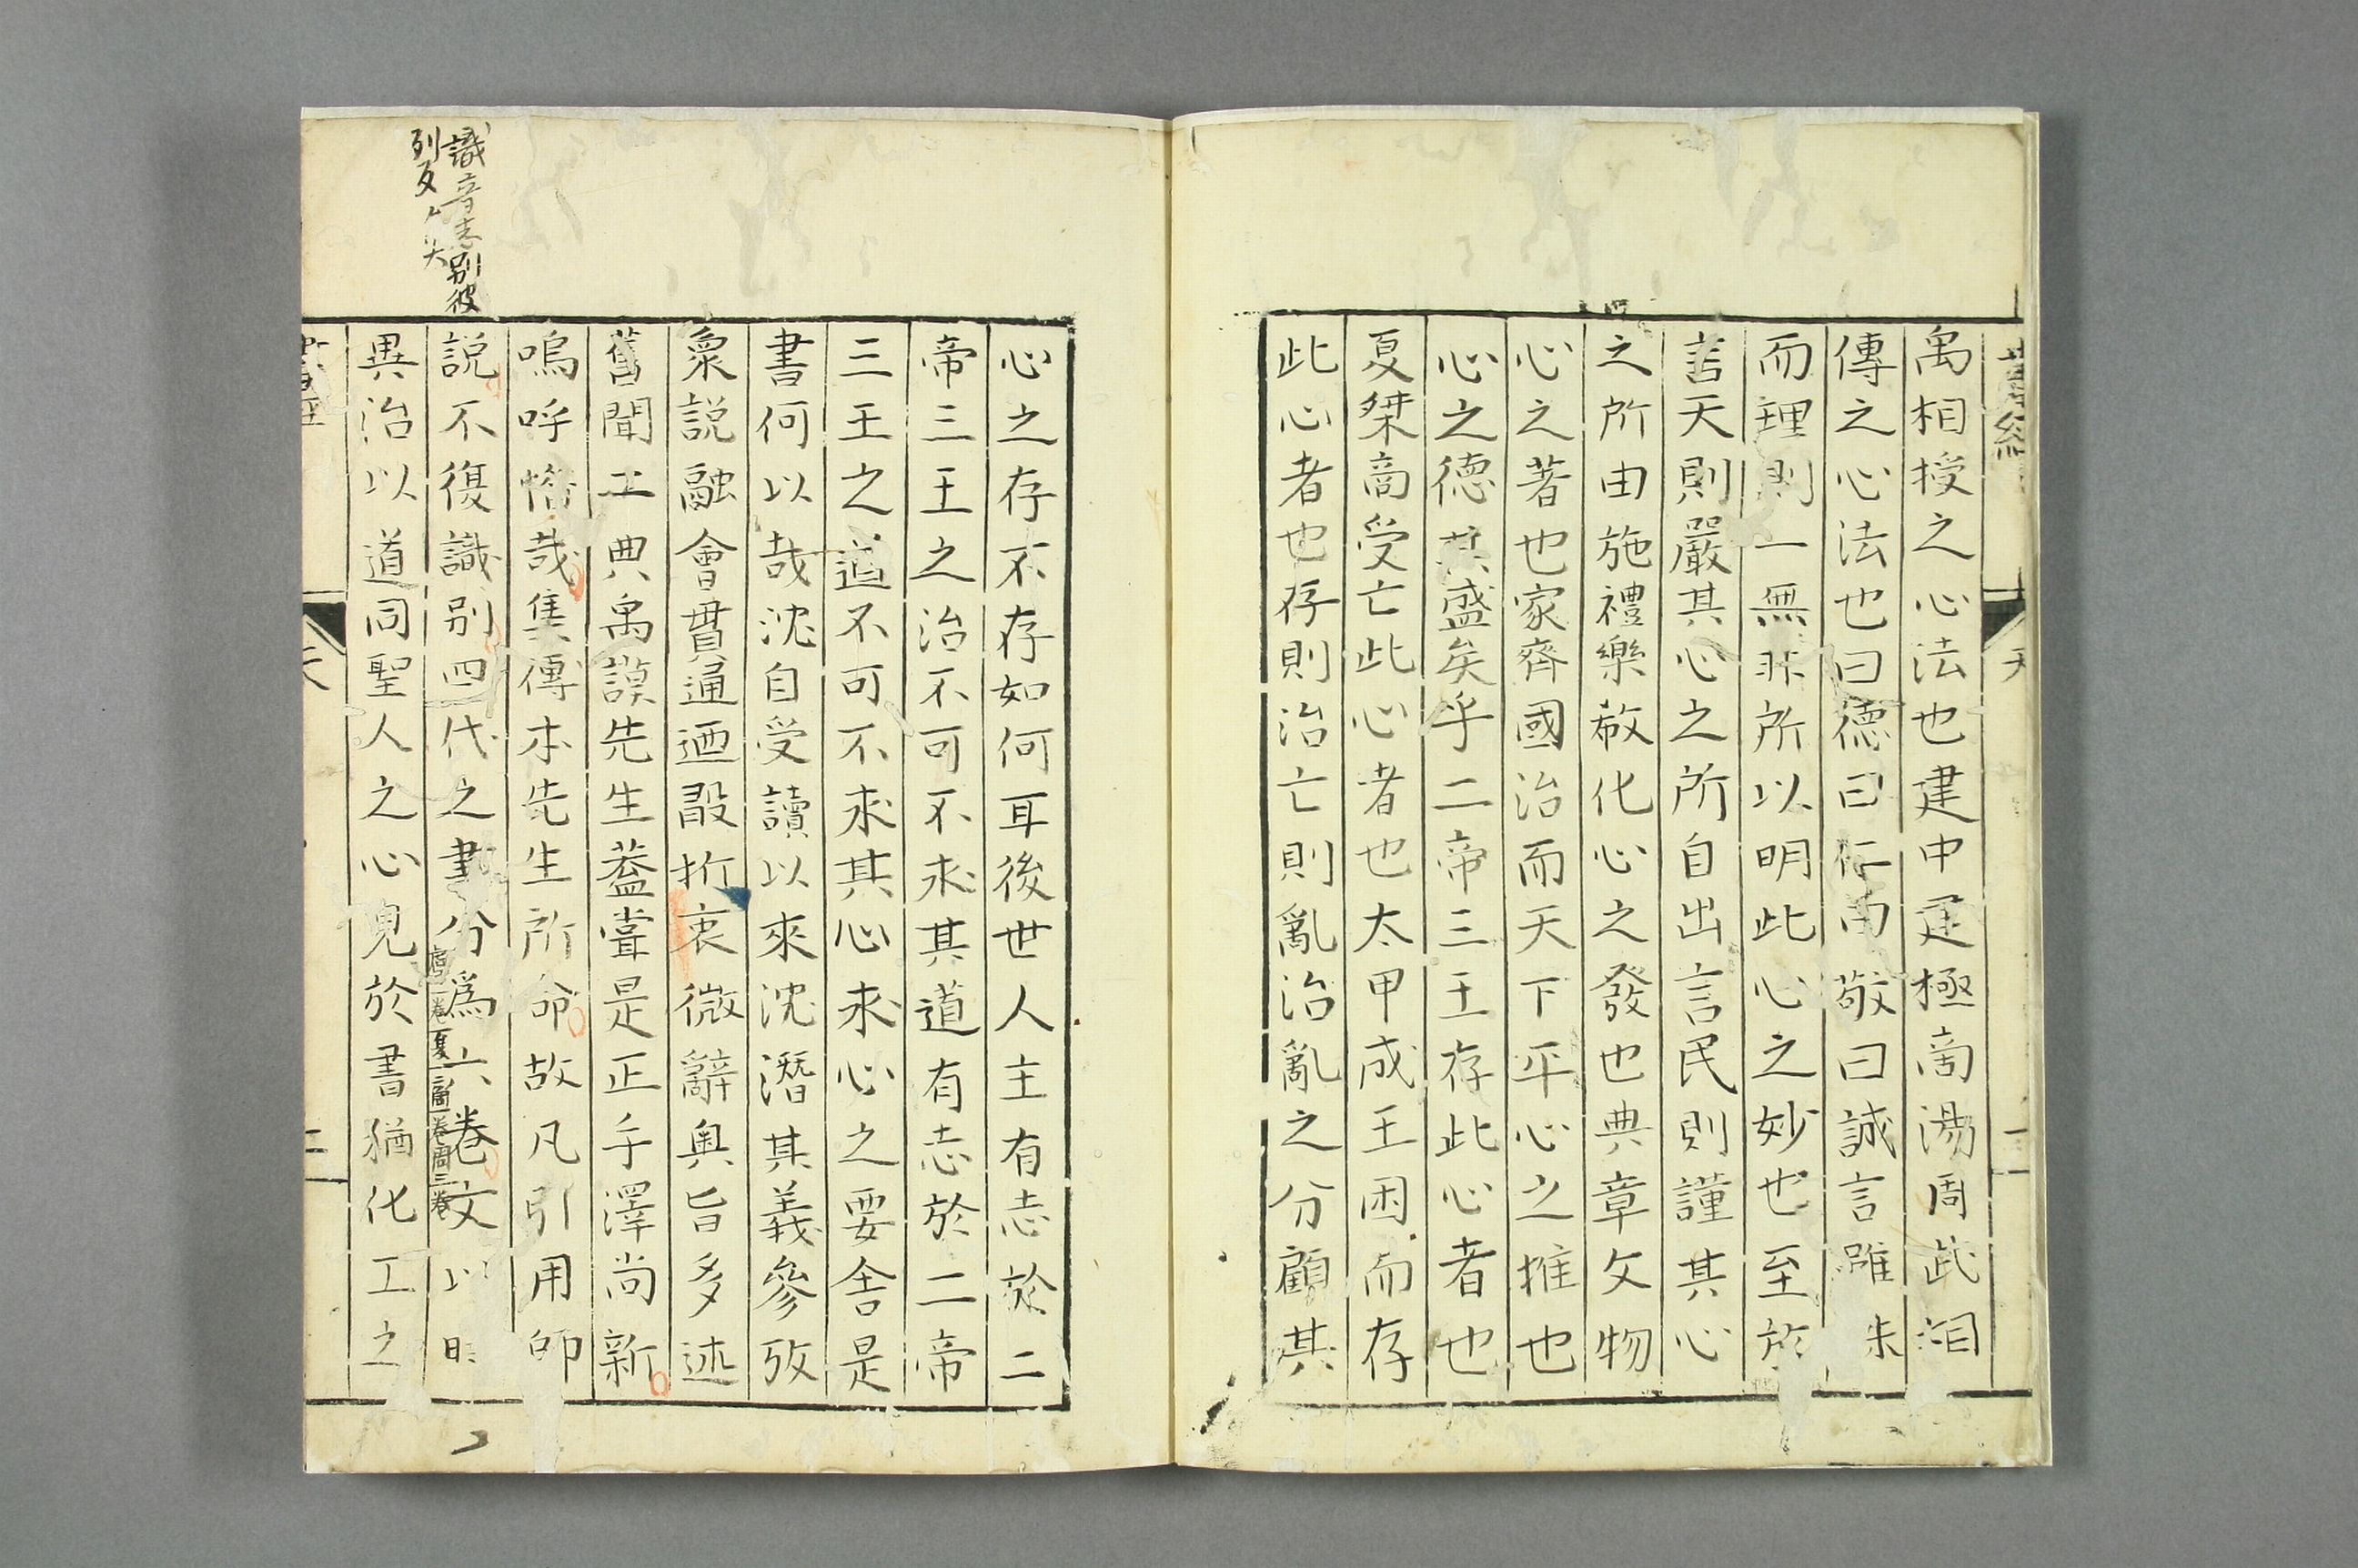 書經
天
禹相授之心法也建中建極啇湯周武相
傳之心法也曰德曰仁曰敬曰誠言雖殊
而理則一無非所以明此心之妙也至於
言天則嚴其心之所自出言民則謹其心
之所由施禮樂敎化心之發也典章文物
心之著也家齊國治而天下平心之推也
心之德其盛矣乎二帝三王存此心者也
夏桀啇受亡此心者也太甲成王困而存
此心者也存則治亡則亂治亂之分顧其
心之存不存如何耳後世人主有志於二
帝三王之治不可不求其道有志於二帝
三王之道不可不求其心求心之要舍是
書何以哉沈自受讀以來沈潛其義參攷
衆説融會貫通迺敢折衷微辭奥旨多述
舊聞二典禹謨先生蓋甞是正手澤尚新
嗚呼惜哉集傳本先生所命故凡引用師
説不復識别四代之書分爲六卷文以時
虞一卷夏一卷啇一卷周三卷
異治以道同聖人之心見於書猶化工之
識音志别彼
列反
書經